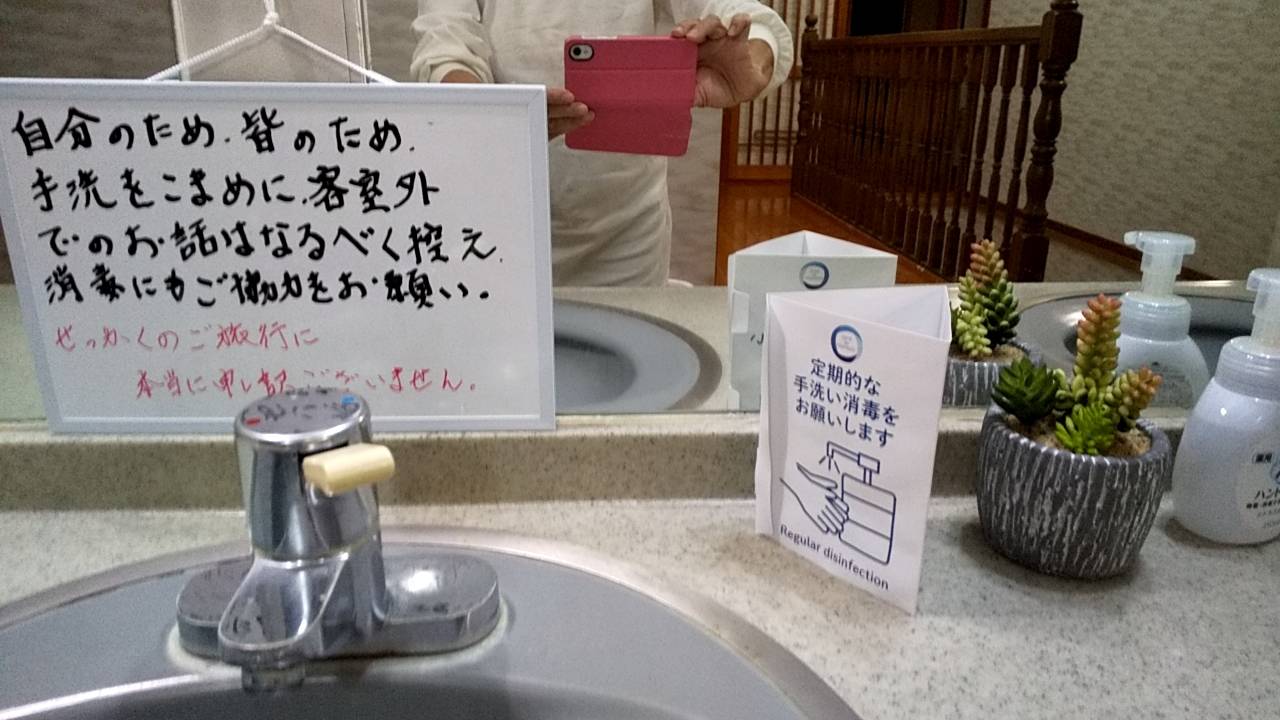 自分のため.皆のため.
手洗をこまめに.客室外
でのお話はなるべく控え.
消毒にもご協力をお願い。
せっかくのご旅行に
本当に申し訳ございません。
定期的な
手洗い消毒を
お願いします
Regular disinfection
薬用